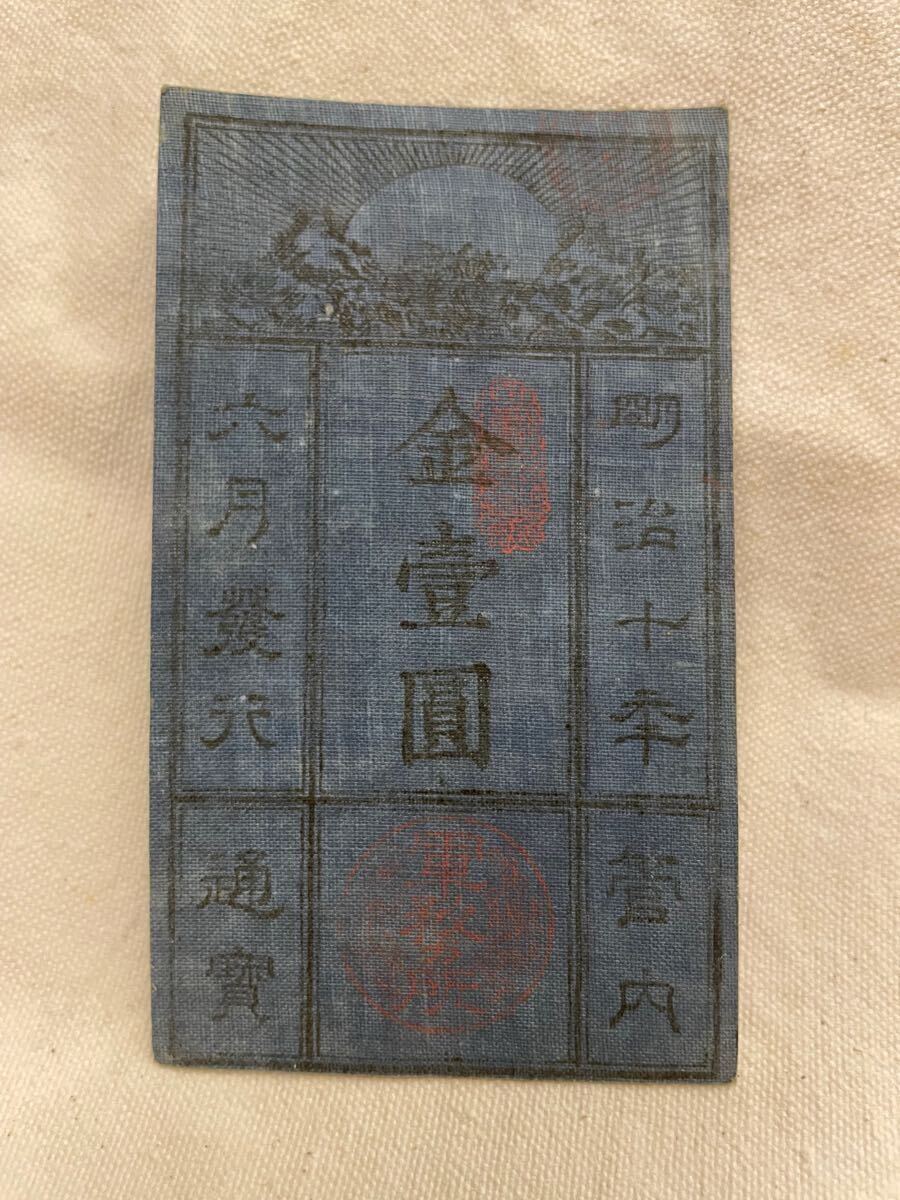 明治十年
管内
金壹圓
軍務所
六月發行
通寶